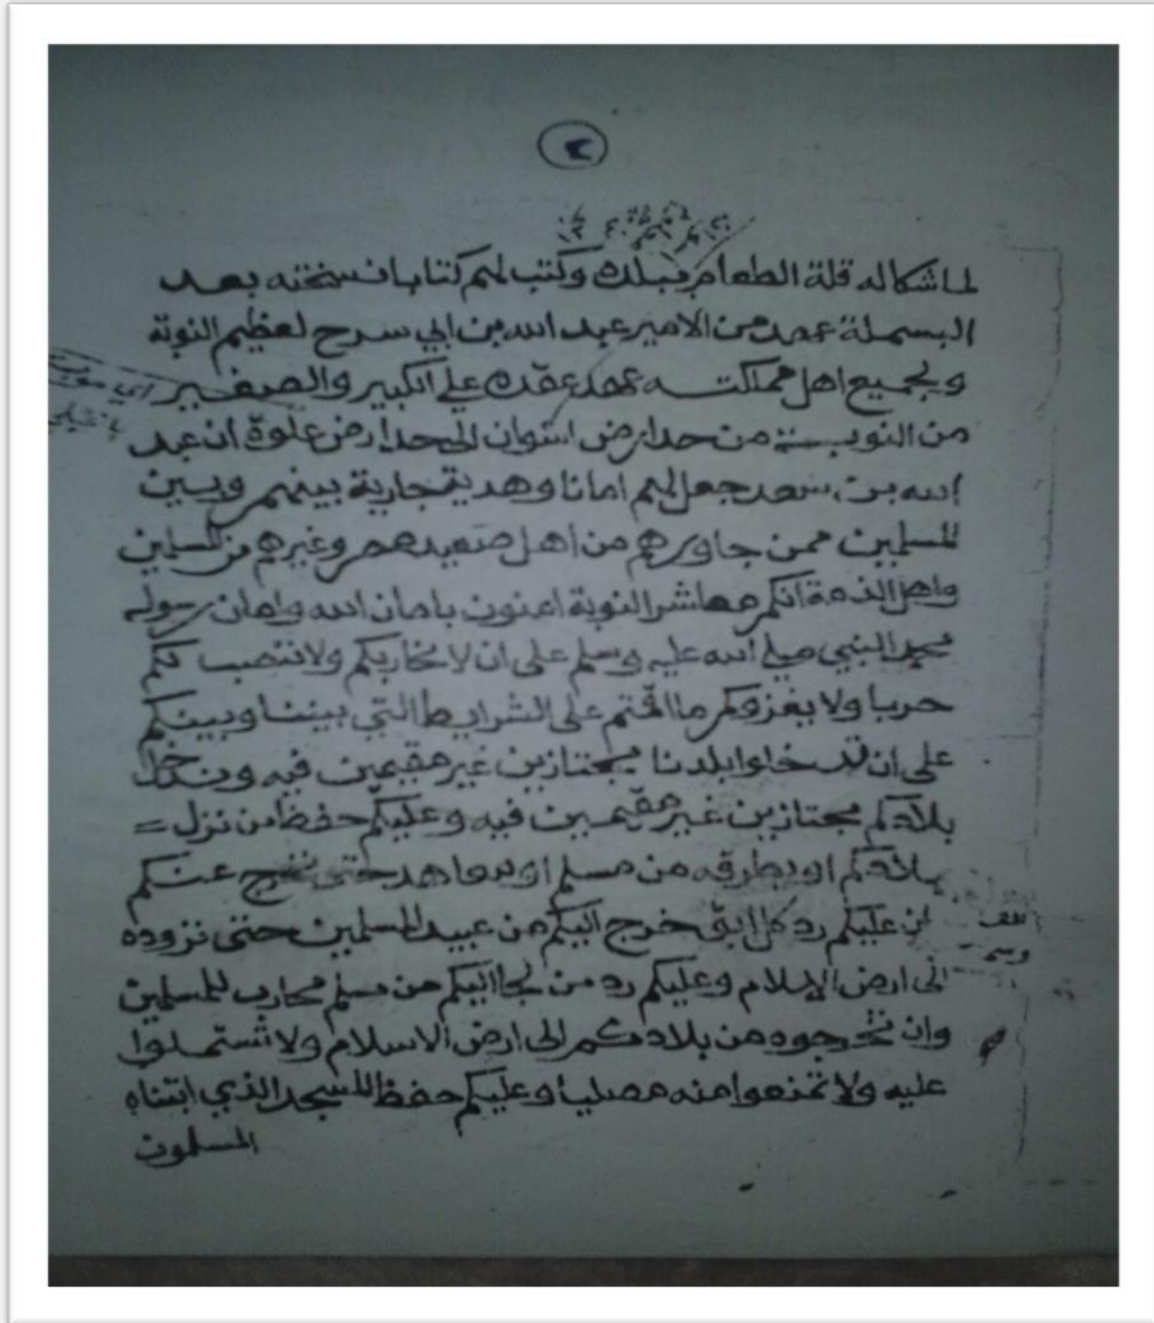 ٢
لما شكا له قلة الطعام ببلده وكتب لهم كتابا نسخته بعد
البسملة عهد من الامير عبد الله بن ابي سرح لعظيم النوبة
ولجميع اهل مملكته عهد عقده على الكبير والصغير
من النوبة من حد ارض اسوان الى حد ارض علوة ان عبد
الله بن سعد جعل لهم امانا وهدية جارية بينهم وبين
المسلمين ممن جاورهم من اهل صعيد مصر وغيرهم من المسلمين
واهل الذمة انكم معاشر النوبة امنون بامان الله وامان رسوله
محمد النبي صلى الله عليه وسلم على ان لا نحاربكم ولا ننصب لكم
حربا ولا يغزوكم ما اقمتم على الشرايط التي بيننا وبينكم
على ان تدخلوا بلدنا مجتازين غير مقيمين فيه وندخل
بلادكم مجتازين غير مقيمين فيه وعليكم حفظ من نزل =
بلادكم او بطرقه من مسلم او معاهد حتى يخرج عنكم
ان عليكم رد كل ابق خرج اليكم من عبيد المسلمين حتى تردوه
الى ارض الاسلام وعليكم رد من لجا اليكم من مسلم محارب للمسلمين
وان تخرجوه من بلادكم الى ارض الاسلام ولا تستملوا
عليه ولا تمنعوا منه مصليا وعليكم حفظ المسجد الذي ابتناه
المسلمون